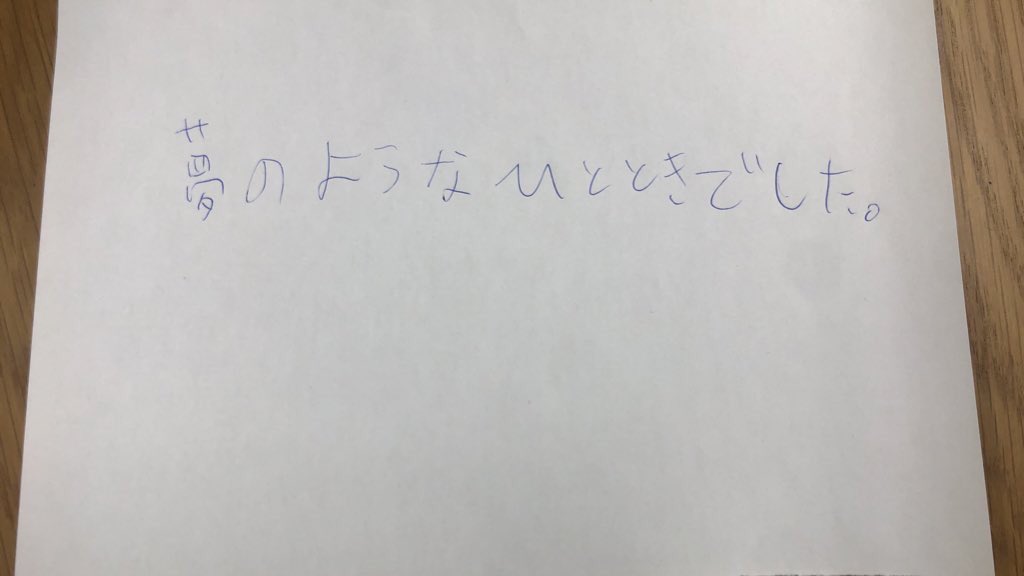 夢のようなひとときでした。